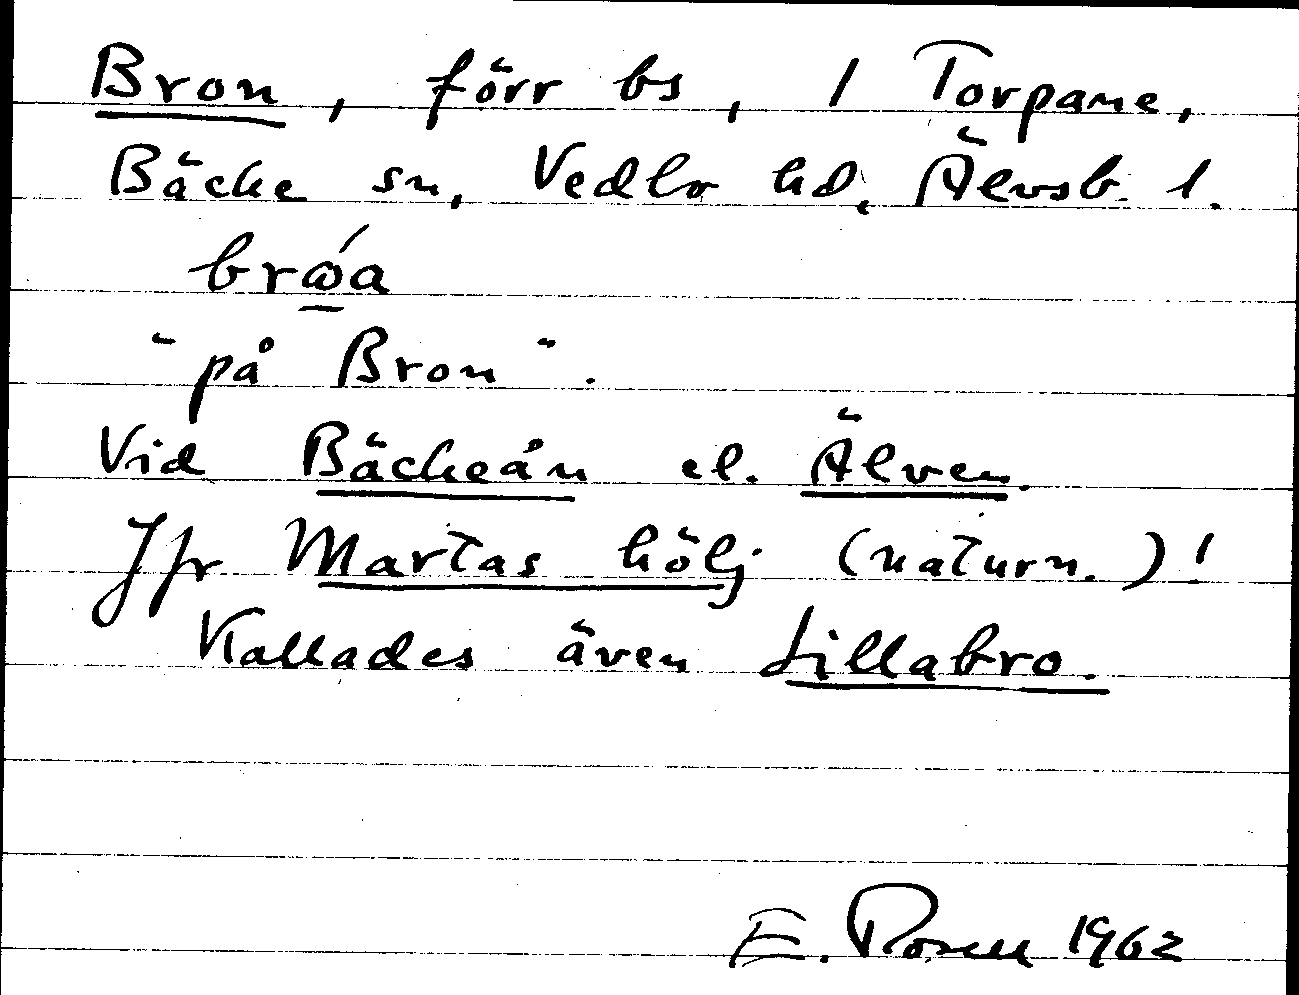 Bron, förr bs, 1 Torpane,
Bäcke sn, Vedbo hd, Älvsb. l.
"på Bron".
Vid Bäckeån el. Älven.
Jfr Martas hölj (naturn.)!
Kallades även Lillabro.
E. Rosell 1962